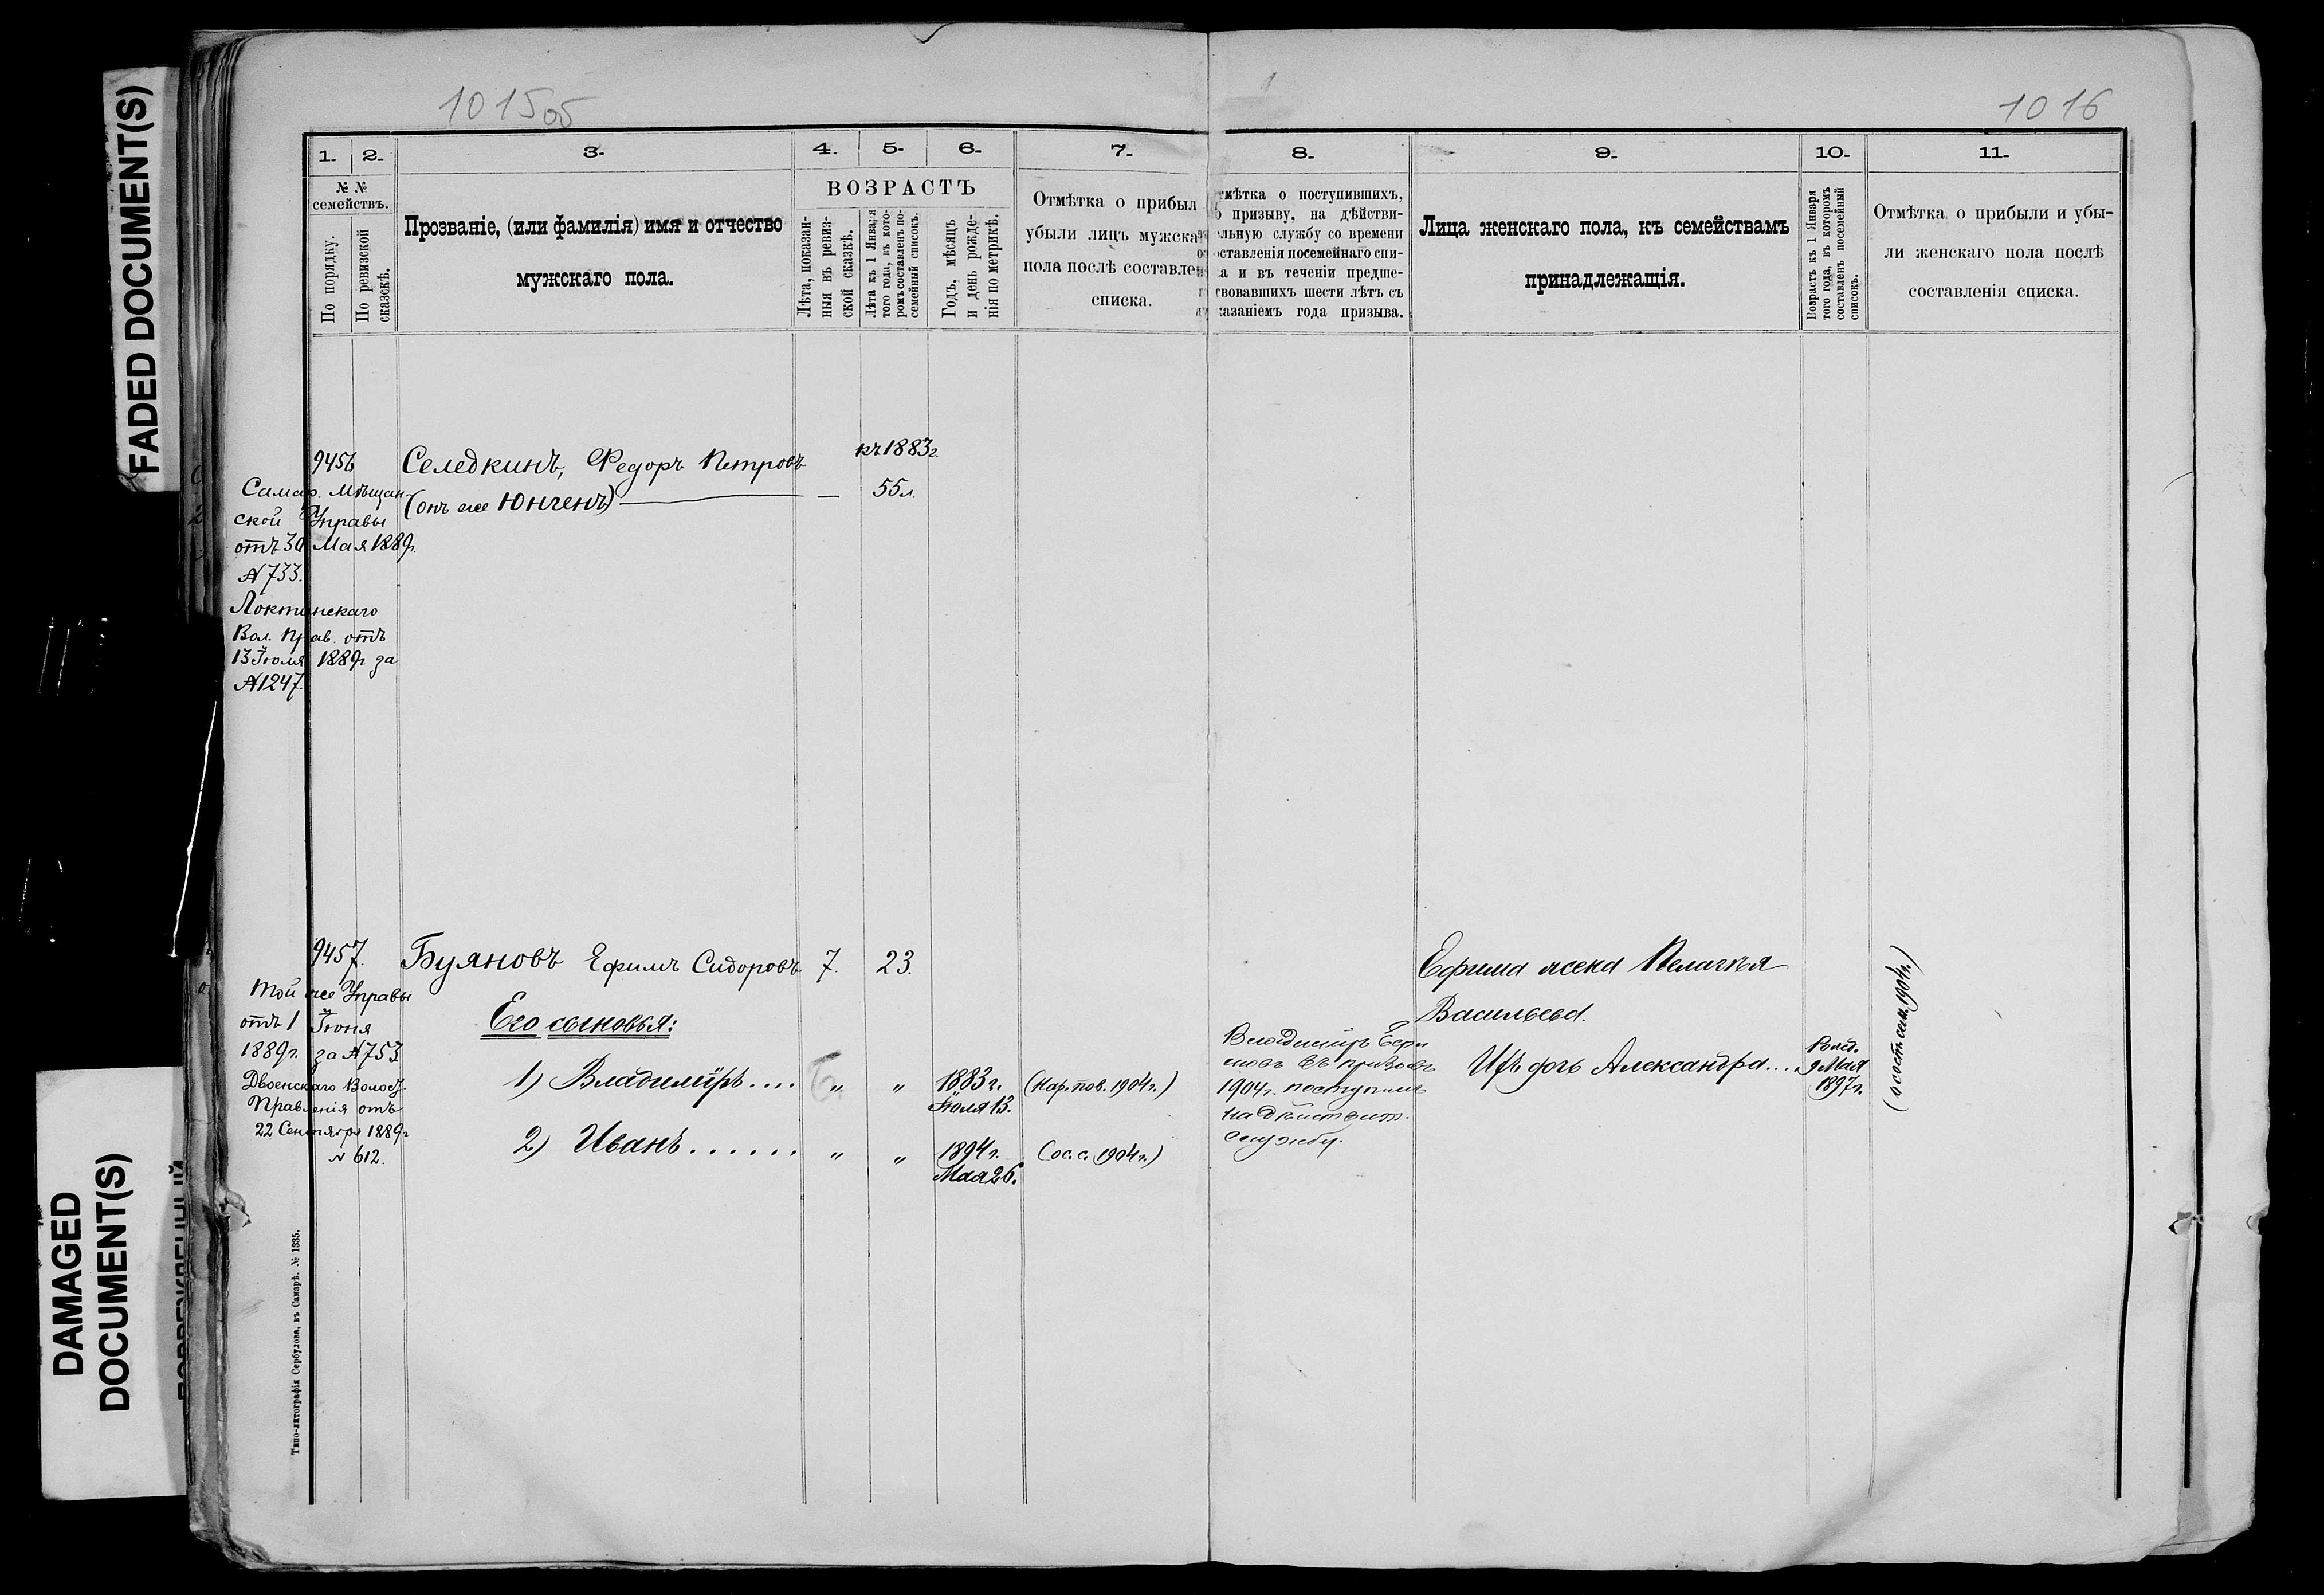 FADED DOCUMENT(S)
DAMAGED
DOCUMENT(S)
1015об
1016
1.
2.
3.
4.
5.
6.
7.
8.
9.
10.
11.
№ №
семействъ.
По порядку.
По ревизской
сказкѣ.
Прозваніе, (или фамилія) имя и отчество
мужскаго пола.
ВОЗРАСТЪ
Лѣта, показан-
ныя въ ревиз-
ской сказкѣ.
Лѣта къ 1 Января
того года, въ кото-
ромъ составленъ по-
семейный списокъ.
Годъ, мѣсяцъ
и день рожде-
нія по метрикѣ.
Отмѣтка о прибыл
убыли лицъ мужска
пола послѣ составлен
списка.
тмѣтка о поступившихъ,
о призыву, на дѣйстви-
льную службу со времени
оставленія посемейнаго спи-
а и въ теченіи предше-
твовавшихъ шести лѣтъ съ
казаніемъ года призыва.
Лица женскаго пола, къ семействамъ
принадлежащія.
Возрастъ къ 1 Января
того года, въ которомъ
составленъ посемейный
списокъ.
Отмѣтка о прибыли и убы-
ли женскаго пола послѣ
составленія списка.
9456
Селедкинъ, Федоръ Петровъ
къ 1883 г.
(онъ же Юнгенъ) —
55 л.
Самар. Мѣщан-
ской Управы
отъ 30 Мая 1889 г.
№ 733.
Локтинскаго
Вол. Прав. отъ
13 Іюля 1889 г за
№ 1247.
9457.
Буяновъ Ефимъ Сидоровъ
7.
23.
Ефима жена Пелагея
Васильева.
Той же Управы
отъ 1 Іюня
1889 г. за № 753
Двоенскаго Волост.
Правленія отъ
22 Сентября 1889 г
№ 612.
Его сыновья:
1) Владиміръ....
„
„
1883 г.
Іюля 13.
(нар. пов. 1904 г.)
Владиміръ Ефи
мовъ въ призывъ
1904 г. поступилъ
на дѣйствит.
службу.
Ихъ дочь Александра...
Рожд.
9 Мая
1897 г.
2) Иванъ......
„
„
1894 г.
Мая 26.
(ос. с. 1904 г.)
Типо-литографія Сербулова, въ Самарѣ. № 1335.